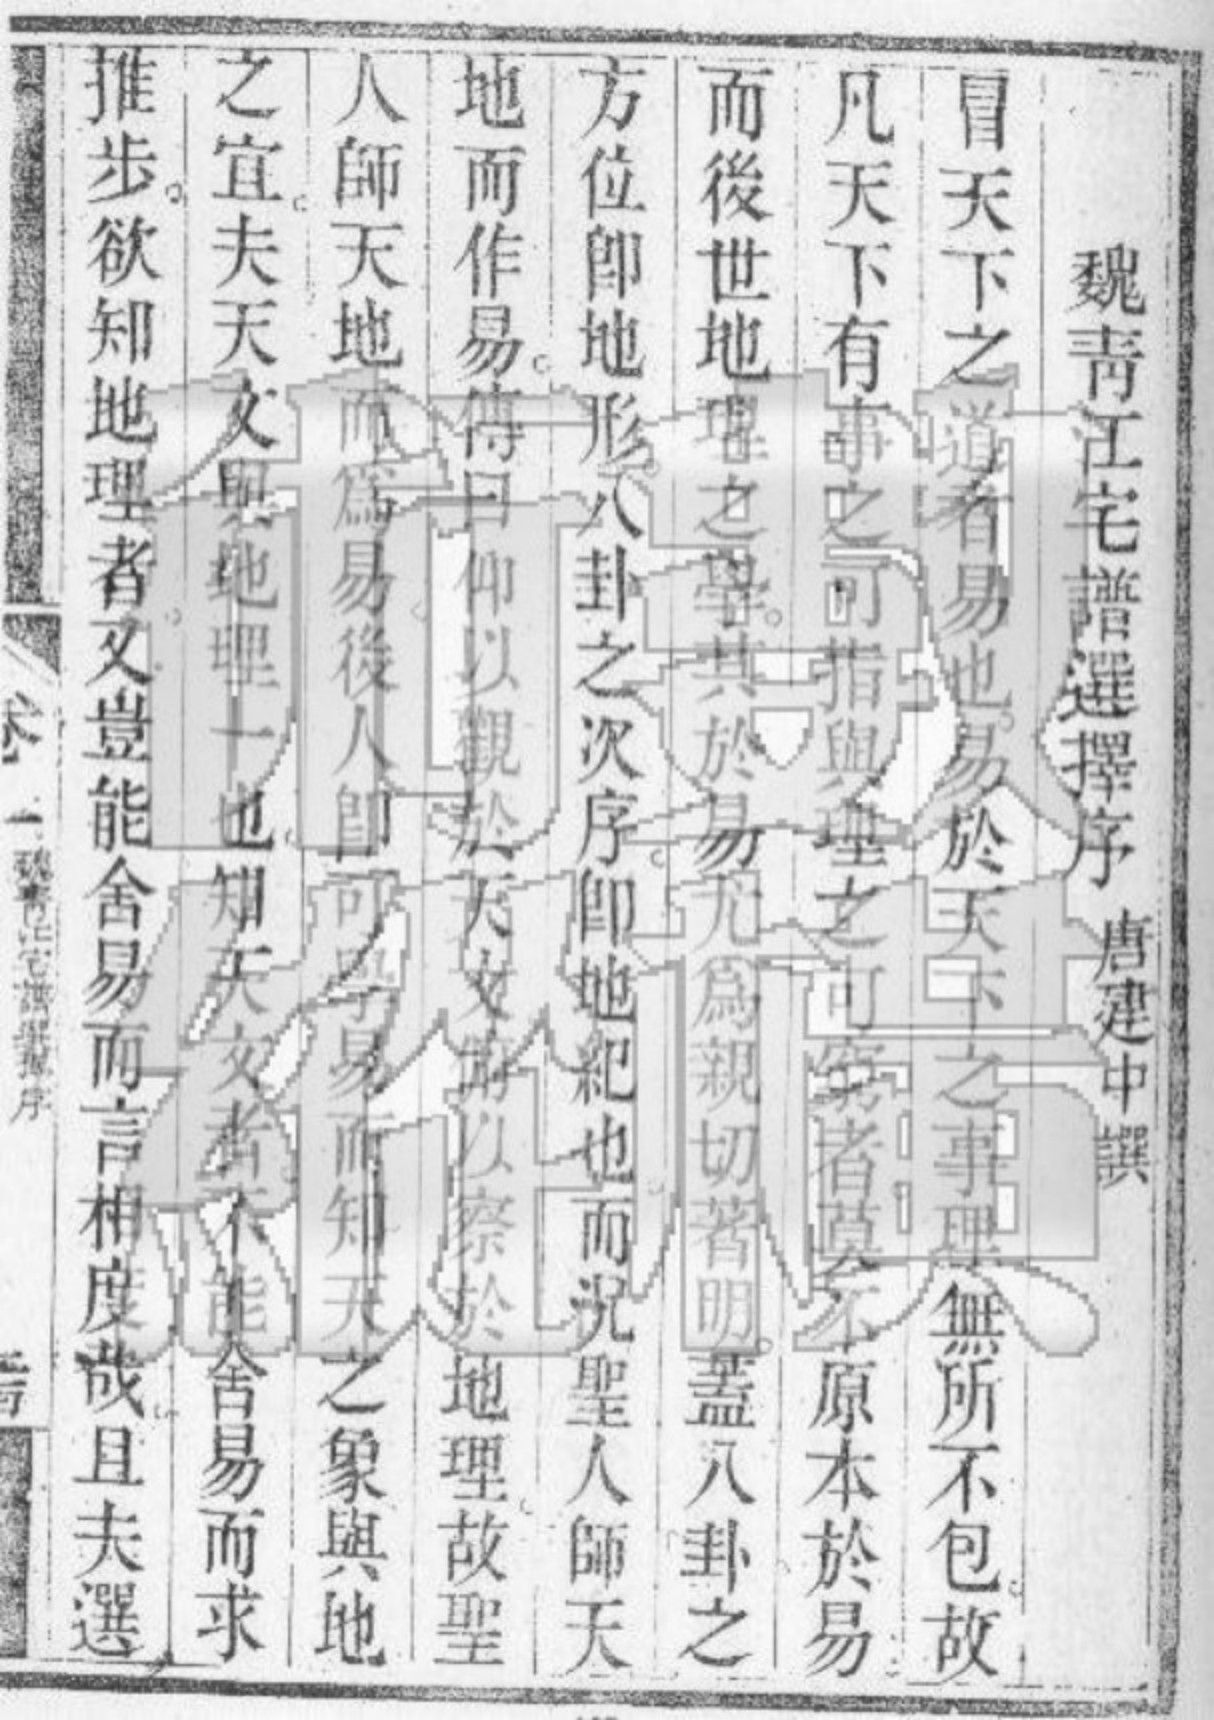 魏青江宅譜選擇序 唐建中撰
冒天下之道者易也易於天下之事理無所不包故
凡天下有事之可指與理之可窮者莫不原本於易
而後世地理之學其於易尤爲親切著明蓋八卦之
方位卽地形八卦之次序卽地紀也而況聖人師天
地而作易傳曰仰以觀於天文俯以察於地理故聖
人師天地而爲易後人卽可學易而知天之象與地
之宜夫天文與地理一也知天文者不能舍易而求
推步欲知地理者又豈能舍易而言相度哉且夫選
卷一 魏青江宅譜選擇序